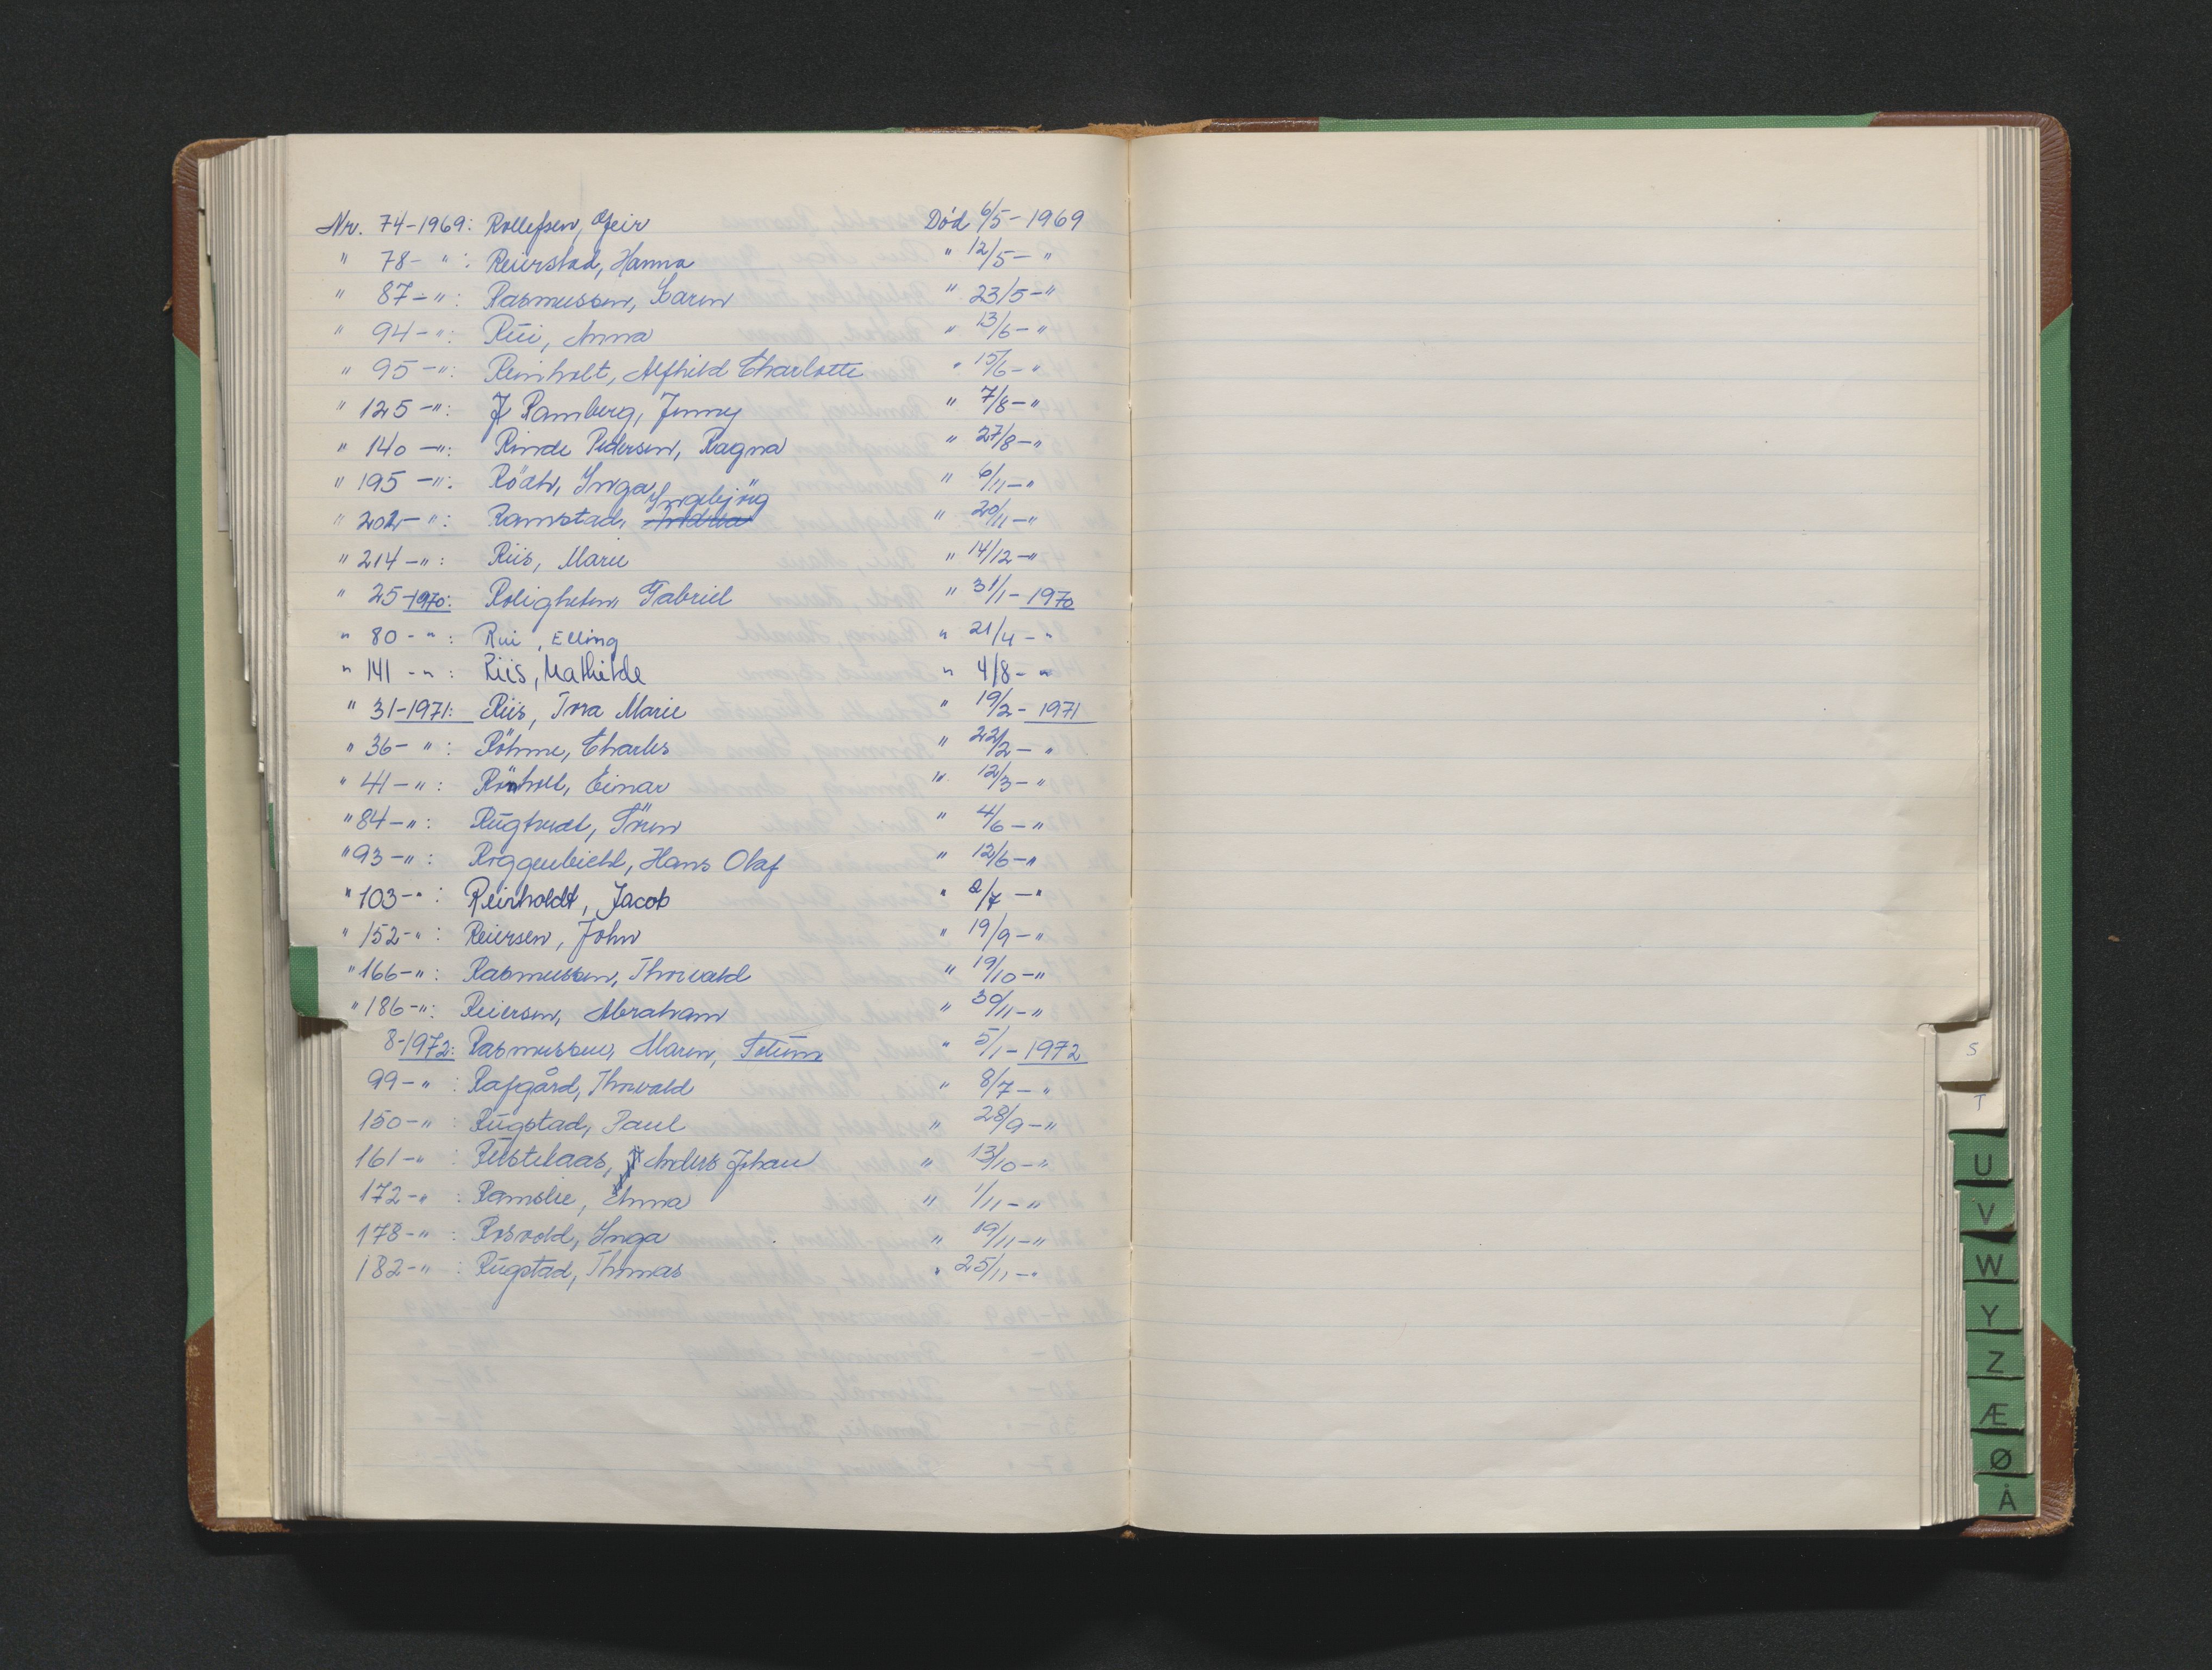 Nr. 74-1969: Rollefsen, Geir Død 6/5-1969
" 78- " : Reierstad, Hanna " 12/5- "
" 87-" : Rasmussen, Karen " 23/5-"
" 94-" : Rui, Anna " 13/6-"
" 95-" : Reinholt, Alfhild Charlotte " 15/6-"
" 125-" : Ramberg, Jenny " 7/8-"
" 140-" : Rinde Pedersen, Ragna " 27/8-"
" 195-" : Inga " 6/11-"
Ingebjörg
" 202-" : Ramstad, " 20/11-"
" 214-" : Riis, Marie " 14/12-"
" 25-1970: Roligheten, Gabriel " 31/1-1970
" 80-" : Rui, Elling " 21/4-"
" 141-" : Riis, Mathilde " 4/8-"
" 31-1971: Riis, Tora Marie " 19/2-1971
" 36-" : Röhme, Charles " 22/2-"
" 41-" : Einar " 12/3-"
" 84-" : Rugtvedt, Sören " 4/6-"
" 93-" : Roggenbichl, Hans Olaf " 12/6-"
" 103-" : Reinholdt, Jacob " 2/7-"
" 152-" : Reiersen, John " 19/9-"
" 166-" : Rasmussen, Thorvald " 19/10-"
" 186-" : Reiersen, Abraham " 30/11-"
8-1972: Rasmussen, Maren, " 5/1-1972
99-" : Rafgård, Thorvald " 8/7-"
150-" : Rugstad, Paul " 28/9-"
161-" : Anders Johan " 13/10-"
172-" : Ramslie, Emma " 1/11-"
178-" : Rosvold, Inga " 19/11-"
182-" : Rugstad, Thomas " 25/11-"
S
T
U
V
W
Y
Z
Æ
Ø
Å